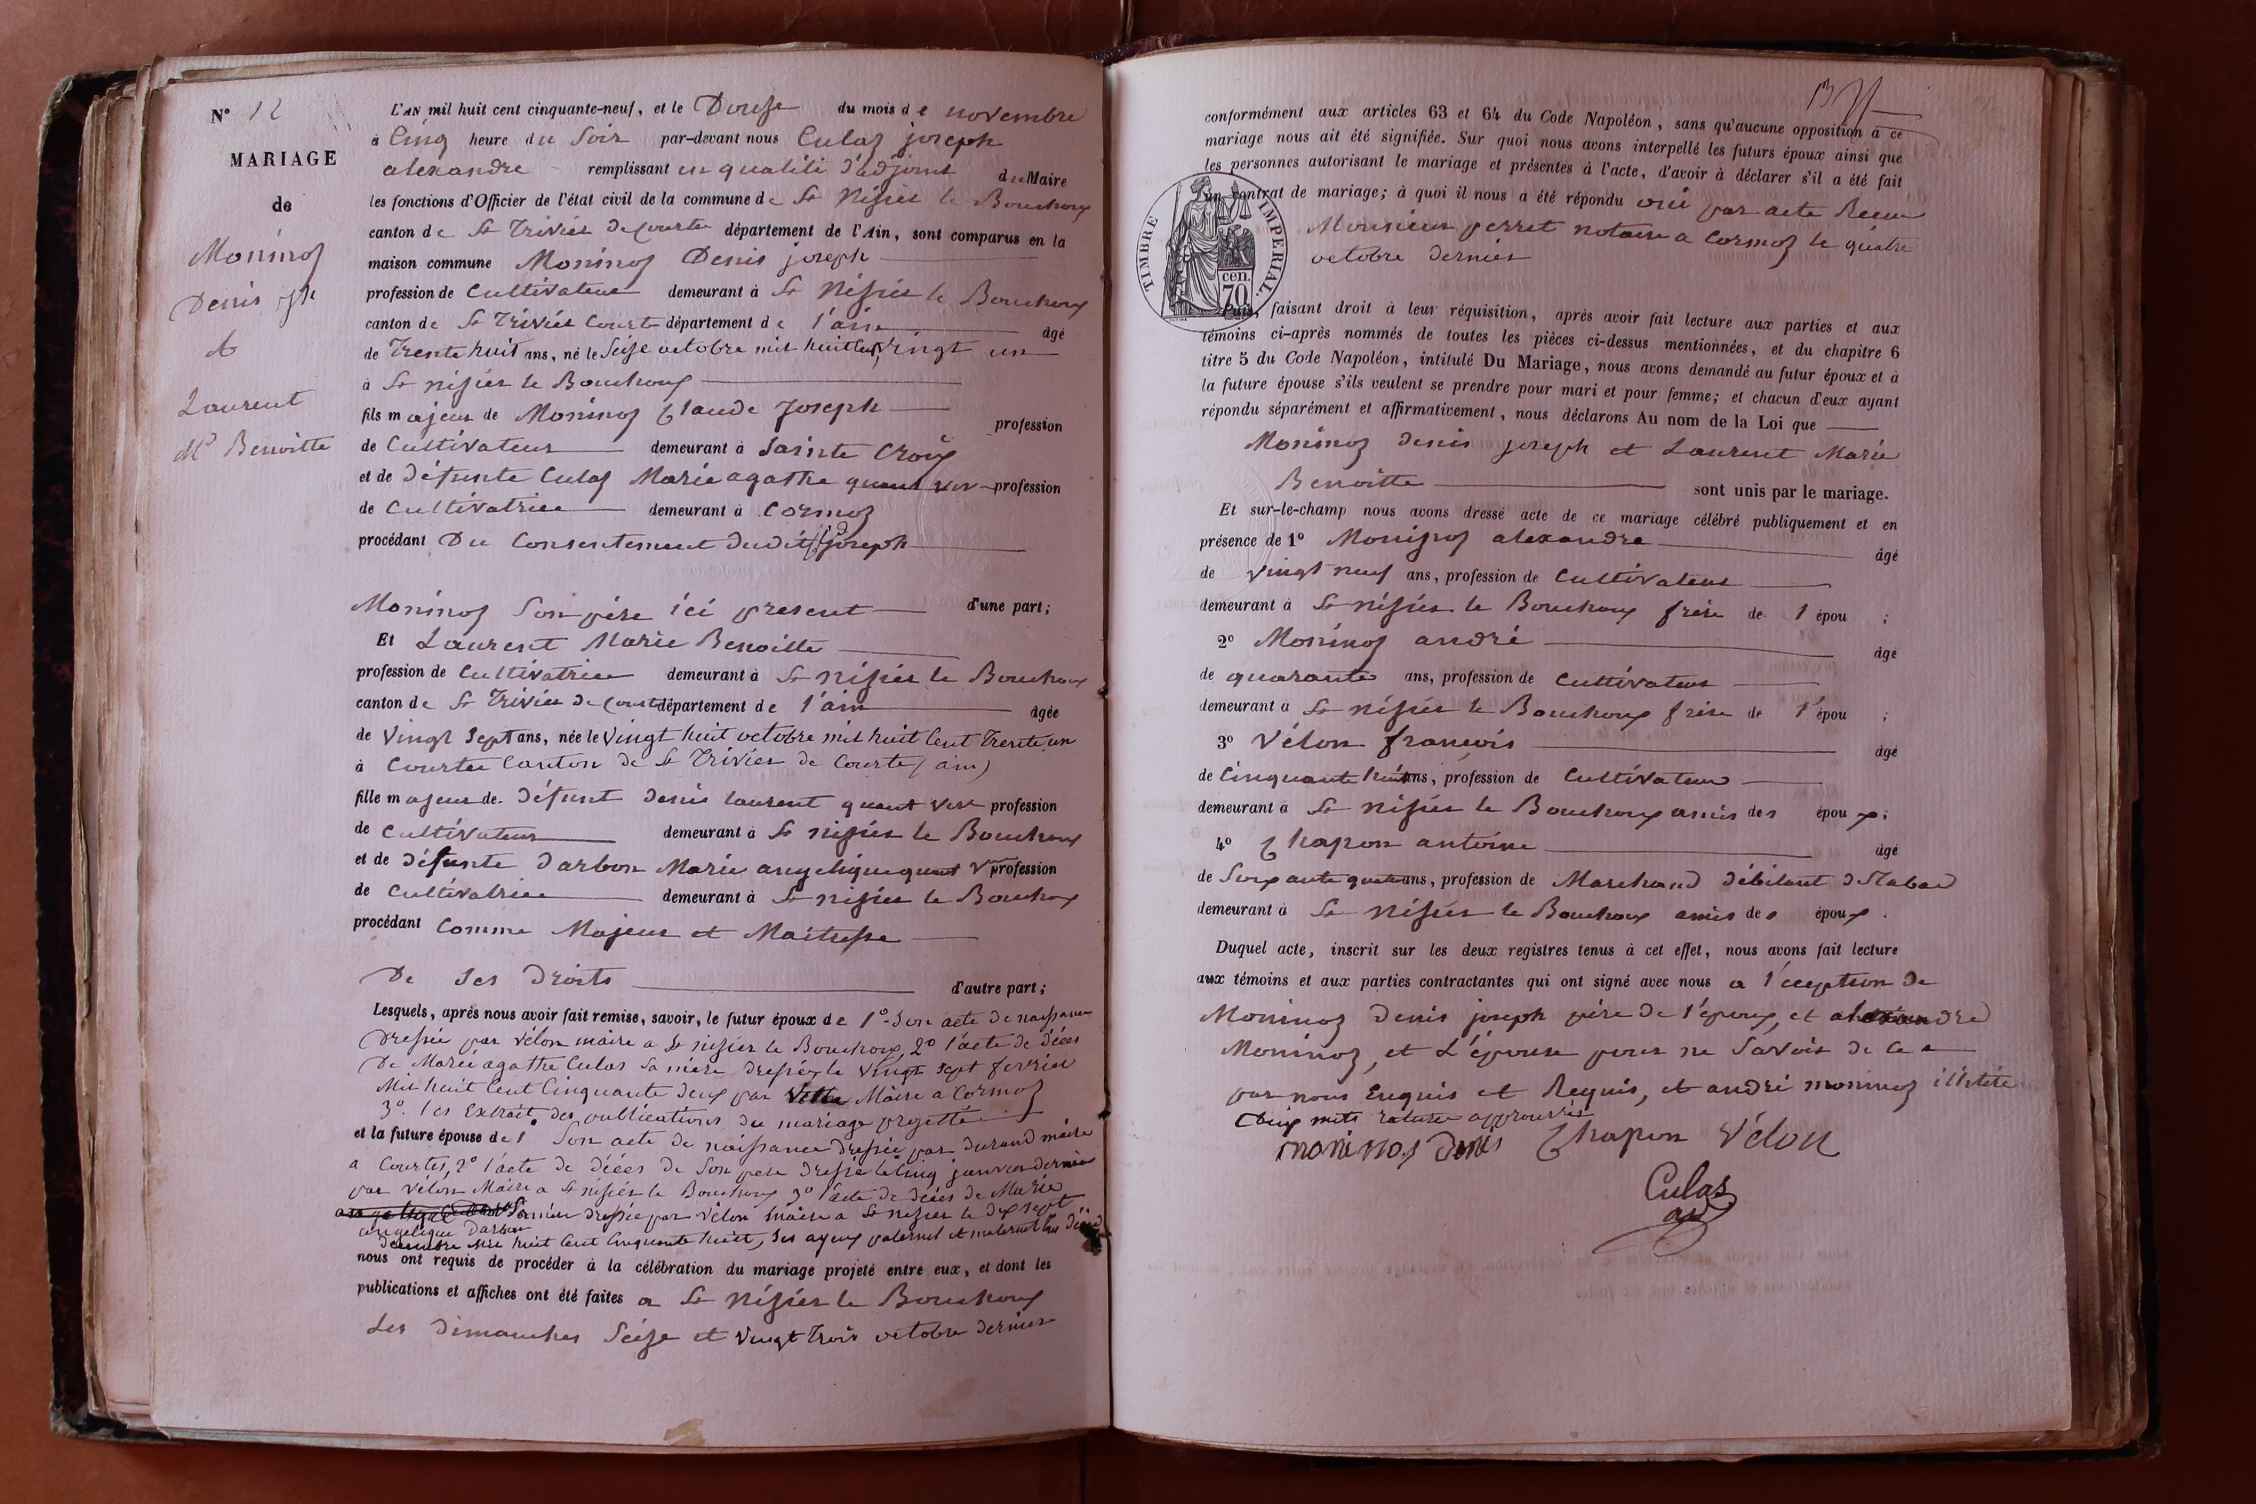 N° 12
MARIAGE
de
Moninoz
Denis jph
et
Laurent
Mie Benoitte
L'AN mil huit cent cinquante-neuf, et le Douze du mois de novembre
à Cinq heure du Soir par-devant nous Culaz joseph
alexandre remplissant en qualité d'adjoint du Maire
les fonctions d'Officier de l'état civil de la commune de St Nizier le Bouchoux
canton de St Trivier de Courtes département de l'Ain, sont comparus en la
maison commune Moninoz Denis joseph
profession de Cultivateur demeurant à St Nizier le Bouchoux
canton de St Trivier Court département de l'ain âgé
de Trente huit ans, né le Seize octobre mil huit Cent vingt un
à St nizier le Bouchoux
fils majeur de Moninoz Claude Joseph profession
de Cultivateur demeurant à Sainte Croix
et de défunte Culas Marie agathe quant viv profession
de Cultivatrice demeurant à Cormoz
procédant Du Consentement dudit Cd joseph
Moninoz Son père ici present d'une part;
Et Laurent Marie Benoitte
profession de Cultivatrice demeurant à St nizier le Bouchoux
canton de St Trivier de Court département de l'ain âgée
de Vingt Sept ans, née le Vingt huit octobre mil huit Cent Trente un
à Courtes Canton de St Trivier de Courtes (ain)
fille majeur de défunt denis laurent quant viv profession
de Cultivateur demeurant à St nizier le Bouchoux
et de défunte darbon Marie angelique quant v profession
de Cultivatrice demeurant à St nizier le Bouchoux
procédant Comme Majeur et Maitresse
De Ses Droits d'autre part;
Lesquels, après nous avoir fait remise, savoir, le futur époux de 1° Son acte de naissance
Dressée par Vélon maire a St nizier le Bouchoux, 2° l'acte de décès
De Marie agathe Culas Sa mère dressée le Vingt sept fevrier
Mil huit Cent Cinquante deux par Maire a Cormoz
3°. les Extrait des publications du mariage projetté
et la future épouse de 1° Son acte de naissance dressée par durand maire
a Courtes, 2° l'acte de décès de Son père dressé le Cinq janvier dernier
par Vélon Maire a St nizier le Bouchoux 3° l'acte de décès de Marie
Sa mère dressée par Vélon Maire a St nizier le dix sept
angelique Darbon
decembre mil huit Cent Cinquante huit, Ses ayeux paternel et maternel
nous ont requis de procéder à la célébration du mariage projeté entre eux, et dont les
publications et affiches ont été faites a St Nizier le Bouchoux
Les dimanches Seize et Vingt Trois octobre dernier
conformément aux articles 63 et 64 du Code Napoléon, sans qu'aucune opposition à ce
mariage nous ait été signifiée. Sur quoi nous avons interpellé les futurs époux ainsi que
les personnes autorisant le mariage et présentes à l'acte, d'avoir à déclarer s'il a été fait
un contrat de mariage; à quoi il nous a été répondu oui par acte Recu
Monsieur perret notaire a Cormoz le quatre
octobre dernier
TIMBRE IMPERIAL.
70 cen.
Puis, faisant droit à leur réquisition, après avoir fait lecture aux parties et aux
témoins ci-après nommés de toutes les pièces ci-dessus mentionnées, et du chapitre 6
titre 5 du Code Napoléon, intitulé Du Mariage, nous avons demandé au futur époux et à
la future épouse s'ils veulent se prendre pour mari et pour femme; et chacun d'eux ayant
répondu séparément et affirmativement, nous déclarons Au nom de la Loi que
Moninoz denis joseph et Laurent Marie
Benoitte sont unis par le mariage.
Et sur-le-champ nous avons dressé acte de ce mariage célébré publiquement et en
présence de 1° Moninoz alexandre âgé
de vingt neuf ans, profession de Cultivateur
demeurant à St nizier le Bouchoux frère de l'épou ;
2° Moninoz andré âgé
de quarante ans, profession de Cultivateur
demeurant à St nizier le Bouchoux frère de l'épou ;
3° Vélon françois âgé
de Cinquante huit ans, profession de Cultivateur
demeurant à St nizier le Bouchoux amis des époux;
4° Chapon antoine âgé
de Soixante quatre ans, profession de Marchand débitant d Tabac
demeurant à St Nizier le Bouchoux amis des époux.
Duquel acte, inscrit sur les deux registres tenus à cet effet, nous avons fait lecture
aux témoins et aux parties contractantes qui ont signé avec nous a l'éception de
Moninoz denis joseph père de l'époux, et alexandre
Moninoz, et L'épouse pour ne Savoir de ce
par nous Enquis et Requis, et andré moninoz illetté
Cinq mots raturés approuvés
moninoz denis Chapon Vélon
Culas
adj